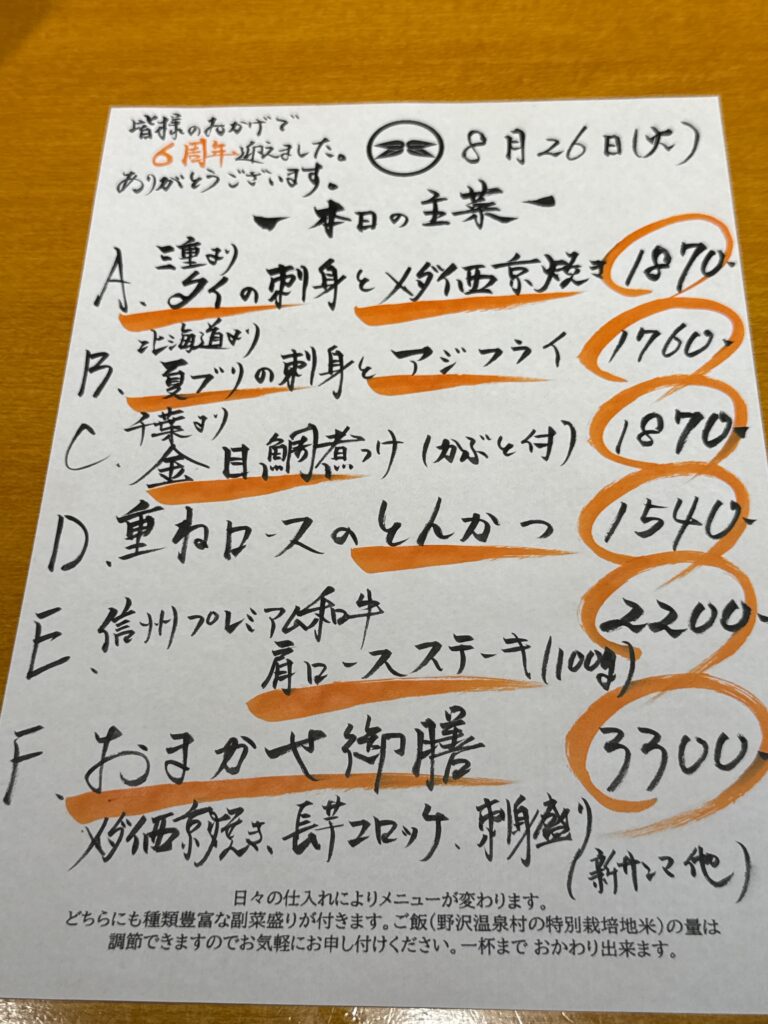 皆様のおかげで
6周年迎えました。
ありがとうございます。
8月26日(火)
ー本日の主菜ー
三重より
A、タイの刺身とメダイ西京焼き 1870-
北海道より
B、夏ブリの刺身とアジフライ 1760-
千葉より
C、金目鯛煮つけ(かぶと付) 1870-
D、重ねロースのとんかつ 1540-
E、信州プレミアム和牛 2200-
肩ロースステーキ(100g)
F、おまかせ御膳 3300-
メダイ西京焼き、長芋コロッケ、刺身盛り
(新サンマ他)
日々の仕入れによりメニューが変わります。
どちらにも種類豊富な副菜盛りが付きます。ご飯(野沢温泉村の特別栽培地米)の量は
調節できますのでお気軽にお申し付けください。一杯まで おかわり出来ます。